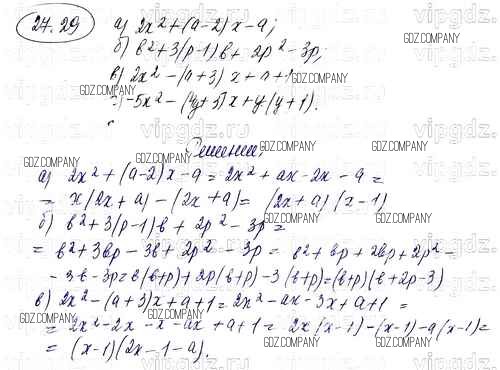 27.29
а) 2x² + (a-2)x - a;
б) b² + 3(p-1)b + 2p² - 3p;
в) 2x² - (a+3)x + a + 1
г) -5x² - (4y+3)x + y(y+1).
Решение:
а) 2x² + (a-2)x - a = 2x² + ax - 2x - a =
= x(2x+a) - (2x+a) = (2x+a)(x-1)
б) b² + 3(p-1)b + 2p² - 3p =
= b² + 3bp - 3b + 2p² - 3p = b² + bp + 2bp + 2p² -
- 3b - 3p = b(b+p) + 2p(b+p) - 3(b+p) = (b+p)(b+2p-3)
в) 2x² - (a+3)x + a + 1 = 2x² - ax - 3x + a + 1 =
= 2x² - 2x - x - ax + a + 1 = 2x(x-1) - (x-1) - a(x-1) =
= (x-1)(2x-1-a).